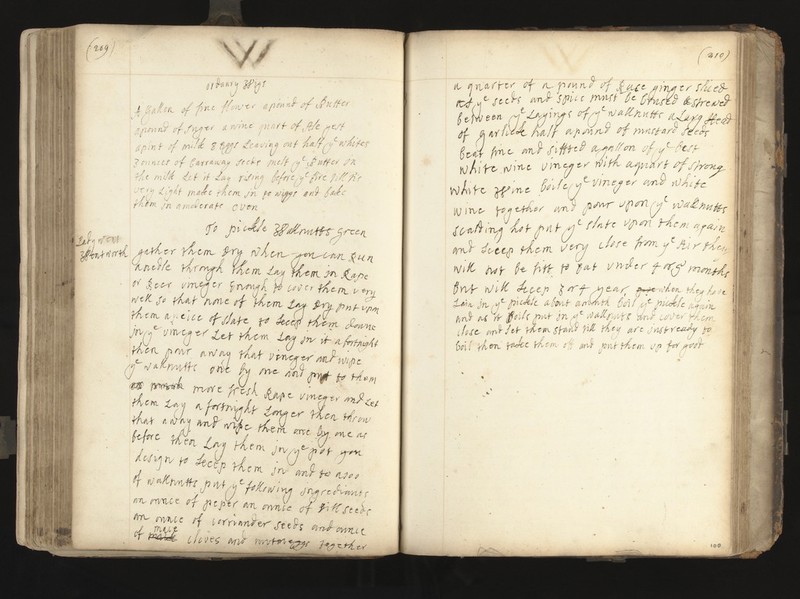 (209)
ordnary Wigs
A Gallon of fine flower a pound of Butter
a pound of suger a wine quart of Ale yest
a pint of milk 3 Eggs Leaving out half ye whites
3 ounces of Carraway seeds melt ye Butter in
the milk Let it Lay rising before ye fire till tis
very Light make them in to wiggs and bake
them in a moderate oven
To pickle Wallnutts green
Lady
Wentworth
gether them Dry when you can Run
a nedle through them Lay them in Rape
or Beer vineger Enough to cover them very
well so that none of them Lay Dry put upon
them a peice of slate to keep them downe
in ye vineger Let them Lay in it a fortnight
then pour away that vineger and wipe
ye wallnutts one by one and put to them
more fresh Rape vineger and Let
them Lay a fortnight Longer then throw
that away and wipe them one by one as
before then Lay them in ye pot you
design to keep them in and to
of wallnutts put ye following ingrediants
an ounce of peper an ounce of Dill seeds
an ounce of corriander seeds and ounce
of mace cloves and nutmeggs together
(210)
a quarter of a pound of Rase ginger sliced
ye seeds and spice must be brused & strewed
between ye Layings of ye wallnutts a Larg Head
of garlick half a pound of mustard seeds
beat fine and siftted a gallon of ye best
white wine vineger with a quart of strong
white Wine boile ye vineger and white
wine together and pour upon ye wallnutts
scalding hot put ye slate upon them again
and keep them very close from ye Air they
will not be fitt to Eat under 4 or 5 months
But will keep 3 or 4 year when they have
Lain in ye pickle about a month boil ye pickle again
and as it boils put in ye wallnutts and cover them
close and let them stand till they are just ready to
boil then take them of and put them up for good
100